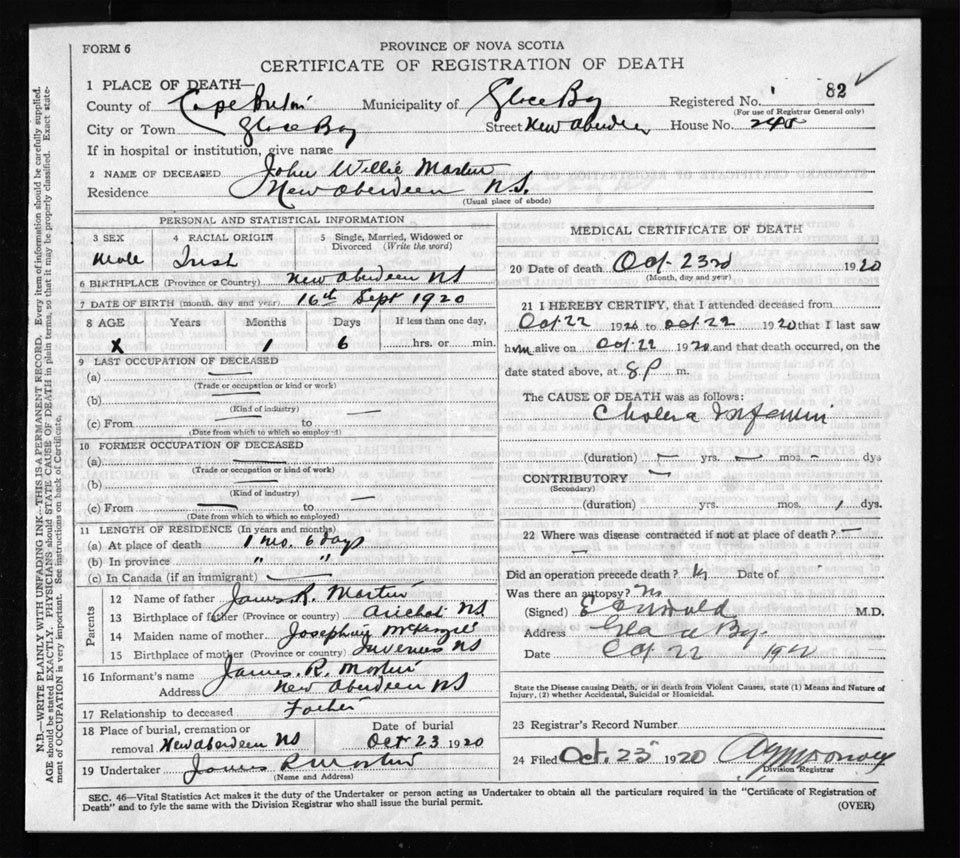 FORM 6
PROVINCE OF NOVA SCOTIA
CERTIFICATE OF REGISTRATION OF DEATH
1 PLACE OF DEATH—
County of Cape Breton Municipality of Glace Bay Registered No. 82
(For use of Registrar General only)
City or Town Glace Bay Street New Aberdeen House No.
If in hospital or institution, give name
2 NAME OF DECEASED John Willie Martin
Residence New Aberdeen N.S.
(Usual place of abode)
PERSONAL AND STATISTICAL INFORMATION
3 SEX 4 RACIAL ORIGIN 5 Single, Married, Widowed or Divorced (Write the word)
Male Irish
6 BIRTHPLACE (Province or Country) New Aberdeen NS
7 DATE OF BIRTH (month, day and year) 16th Sept 1920
8 AGE Years Months Days If less than one day,
X 1 6 hrs. or min.
9 LAST OCCUPATION OF DECEASED
(a)
(Trade or occupation or kind of work)
(b)
(Kind of industry)
(c) From to
(Date from which to which so employed)
10 FORMER OCCUPATION OF DECEASED
(a)
(Trade or occupation or kind of work)
(b)
(Kind of industry)
(c) From to
(Date from which to which so employed)
11 LENGTH OF RESIDENCE (In years and months)
(a) At place of death 1 mo. 6 days
(b) In province " "
(c) In Canada (if an immigrant)
Parents
12 Name of father James R. Martin
13 Birthplace of father (Province or country) Arichat NS
14 Maiden name of mother Josephine McKenzie
15 Birthplace of mother (Province or country) Inverness NS
16 Informant's name James R. Martin
Address New Aberdeen NS
17 Relationship to deceased Father
18 Place of burial, cremation or removal New Aberdeen NS Date of burial Oct 23 1920
19 Undertaker James R Martin
(Name and Address)
MEDICAL CERTIFICATE OF DEATH
20 Date of death Oct. 23rd 1920
(Month, day and year)
21 I HEREBY CERTIFY, that I attended deceased from
Oct 22 1920 to Oct 22 1920 that I last saw
him alive on Oct 22 1920 and that death occurred, on the
date stated above, at 8 P m.
The CAUSE OF DEATH was as follows:
Cholera Infantum
(duration) yrs. mos. dys
CONTRIBUTORY
(Secondary)
(duration) yrs. mos. 1 dys.
22 Where was disease contracted if not at place of death?
Did an operation precede death? Date of
Was there an autopsy? No
(Signed) M.D.
Address Glace Bay
Date Oct 22 1920
State the Disease causing Death, or in death from Violent Causes, state (1) Means and Nature of Injury, (2) whether Accidental, Suicidal or Homicidal.
23 Registrar's Record Number
24 Filed Oct. 23 1920
Division Registrar
SEC. 46—Vital Statistics Act makes it the duty of the Undertaker or person acting as Undertaker to obtain all the particulars required in the "Certificate of Registration of
Death" and to fyle the same with the Division Registrar who shall issue the burial permit. (OVER)
N.B.—WRITE PLAINLY WITH UNFADING INK—THIS IS A PERMANENT RECORD. Every item of information should be carefully supplied.
AGE should be stated EXACTLY. PHYSICIANS should STATE CAUSE OF DEATH in plain terms, so that it may be properly classified. Exact state-
ment of OCCUPATION is very important. See instructions on back of Certificate.